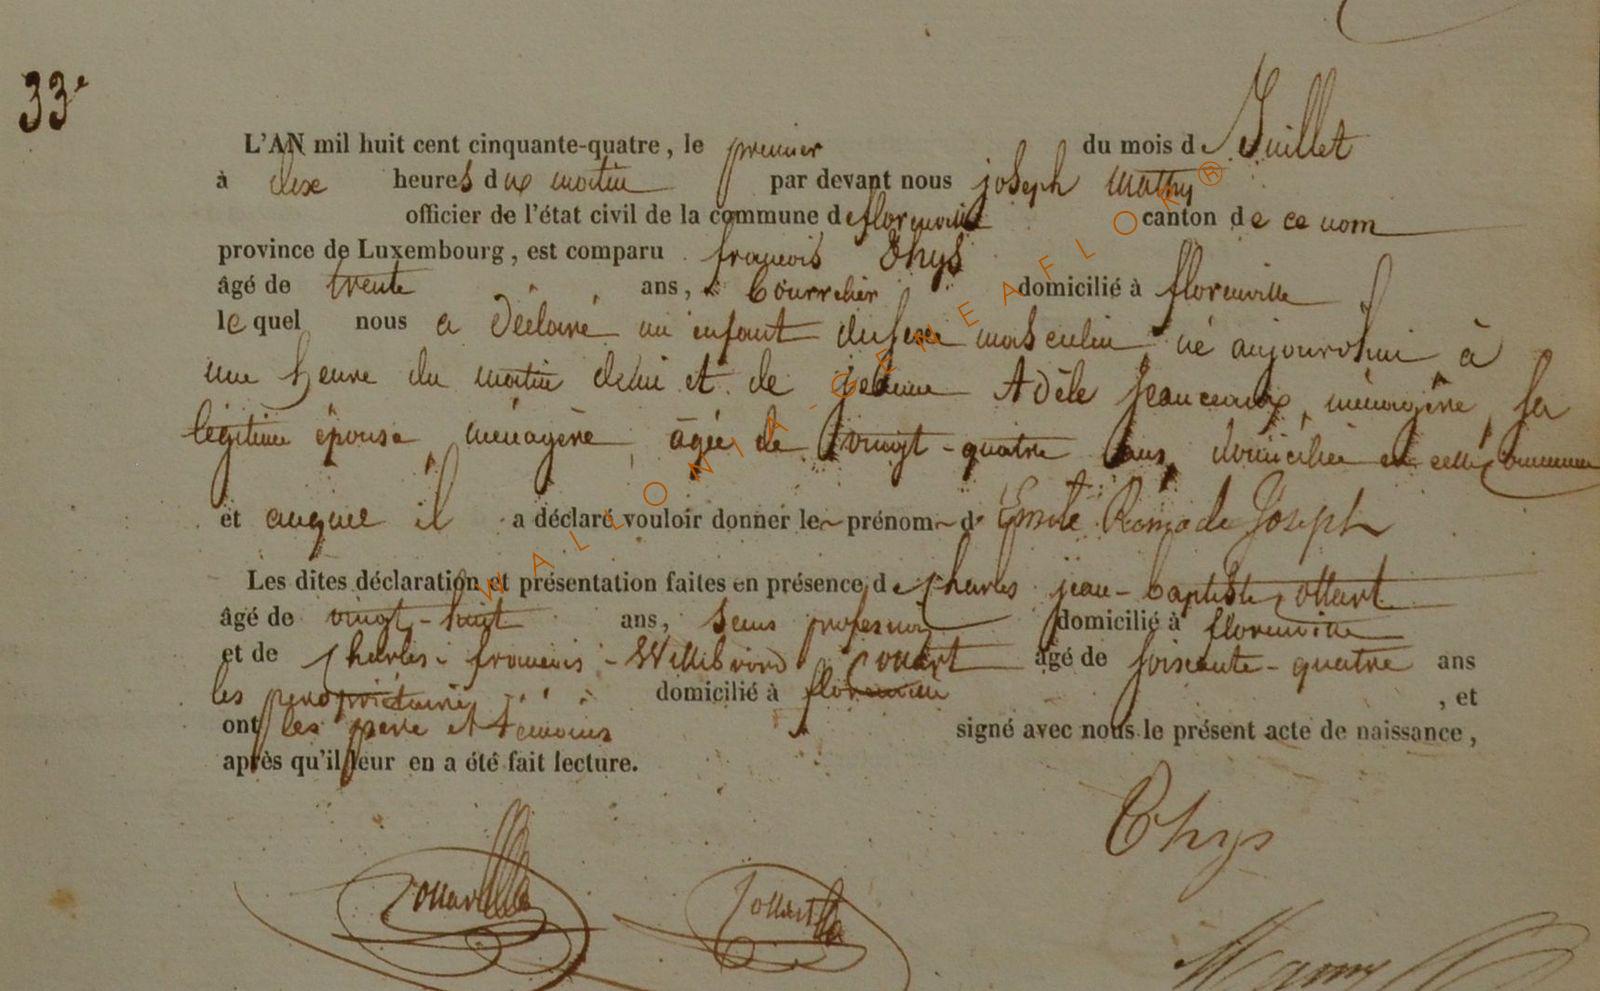 33e
L'AN mil huit cent cinquante-quatre, le premier du mois de Juillet
à dix heures dux matin par devant nous joseph Mathy
officier de l'état civil de la commune de florenville canton de ce nom
province de Luxembourg, est comparu françois Thys
âgé de trente ans, bourrelier domicilié à florenville
lequel nous a déclaré un enfant du sexe masculin, né aujourd'hui à
une heure du matin de lui et de jeanne Adèle jeanceaux, ménagère, sa
légitime épouse, ménagère, âgée de vingt-quatre ans, domiciliée en cette commune
et auquel il a déclaré vouloir donner le prénom d Emile Joseph
Les dites déclaration et présentation faites en présence de Charles jean-baptiste Collart
âgé de vingt-huit ans, sans profession domicilié à florenville
et de Charles-françois-Willibrord Collart âgé de soixante-quatre ans
propriétaire domicilié à florenville, et
ont les père et témoins signé avec nous le présent acte de naissance,
après qu'il leur en a été fait lecture.
Thys
WALLONIA-GENEAFLOR®